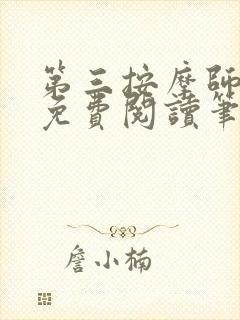 第三按摩師
免費閱讀筆
詹小楠